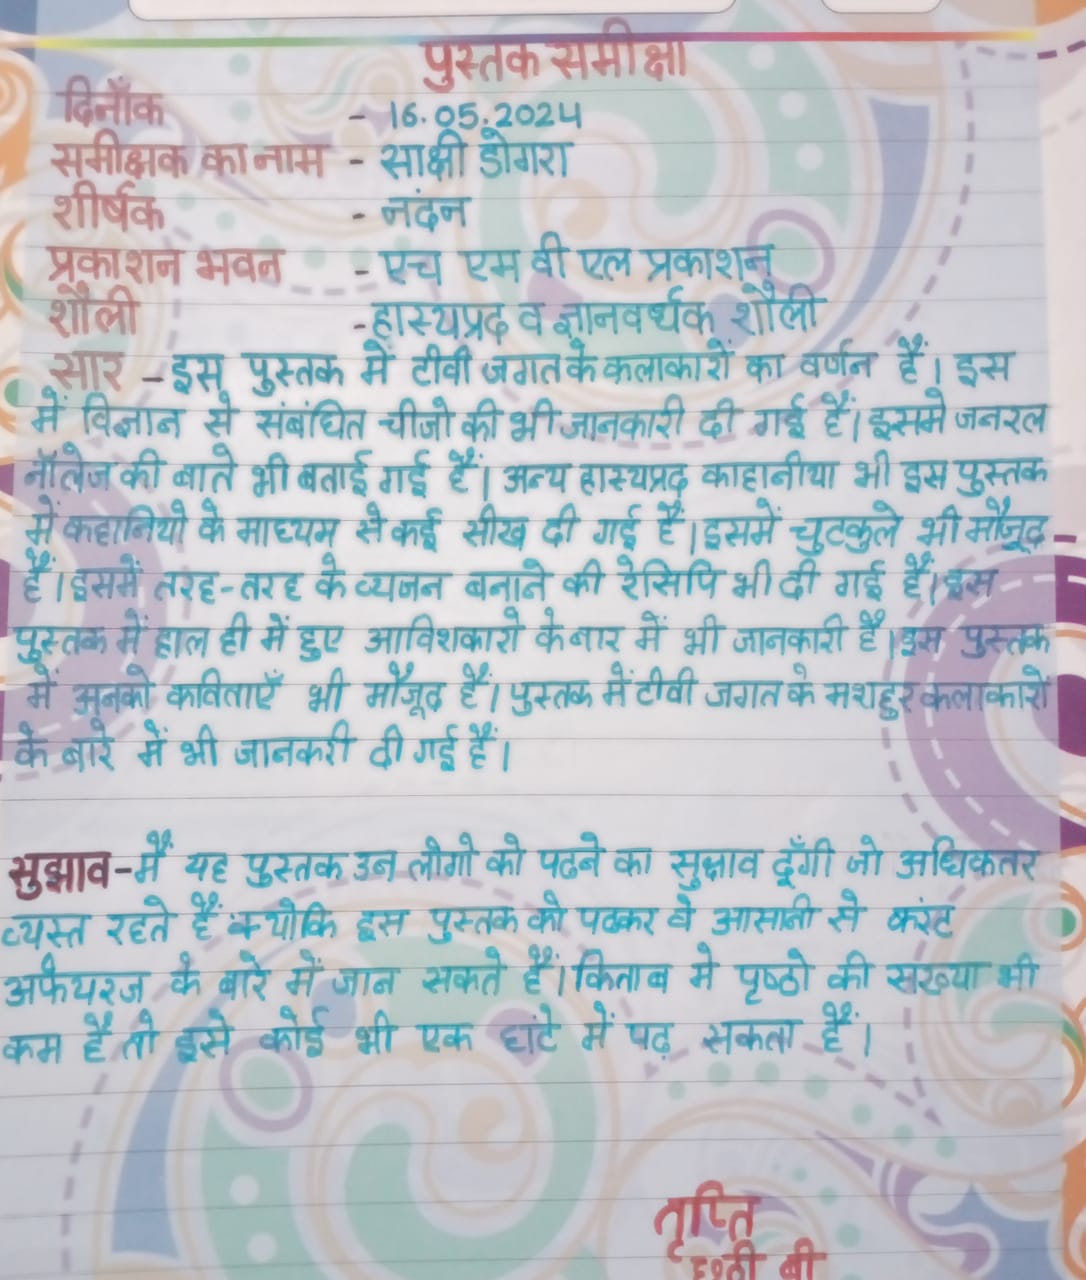 पुस्तक समीक्षा
दिनाँक - 16.05.2024
समीक्षक का नाम - साक्षी डोगरा
शीर्षक - नंदन
प्रकाशन भवन - एच एम वी एल प्रकाशन
शैली - हास्यप्रद व ज्ञानवर्धक शैली
सार - इस पुस्तक में टीवी जगत के कलाकारों का वर्णन हैं। इस
में विज्ञान से संबंधित चीजो की भी जानकारी दी गई हैं। इसमे जनरल
नॉलेज की बाते भी बताई गई हैं। अन्य हास्यप्रद काहानीया भी इस पुस्तक
में कहानियो के माध्यम से कई सीख दी गई हैं। इसमें चुटकुले भी मौजूद
हैं। इसमें तरह-तरह के व्यजन बनाने की रेसिपि भी दी गई हैं। इस
पुस्तक में हाल ही में हुए आविशकारो के बार में भी जानकारी है। इस पुस्तक
में अनको कविताएँ भी मौजूद हैं। पुस्तक में टीवी जगत के मशहुर कलाकारों
के बारे में भी जानकरी दी गई हैं।
सुझाव - मैं यह पुस्तक उन लोगो को पढने का सुझाव दूँगी जो अधिकतर
व्यस्त रहते हैं क्योकि इस पुस्तक को पढकर वे आसानी से करंट
अफेयरज के बारे में जान सकते हैं। किताब मे पृष्ठो की सख्या भी
कम हैं तो इसे कोई भी एक घंटे में पढ़ सकता हैं।
तृप्ति
छठी बी